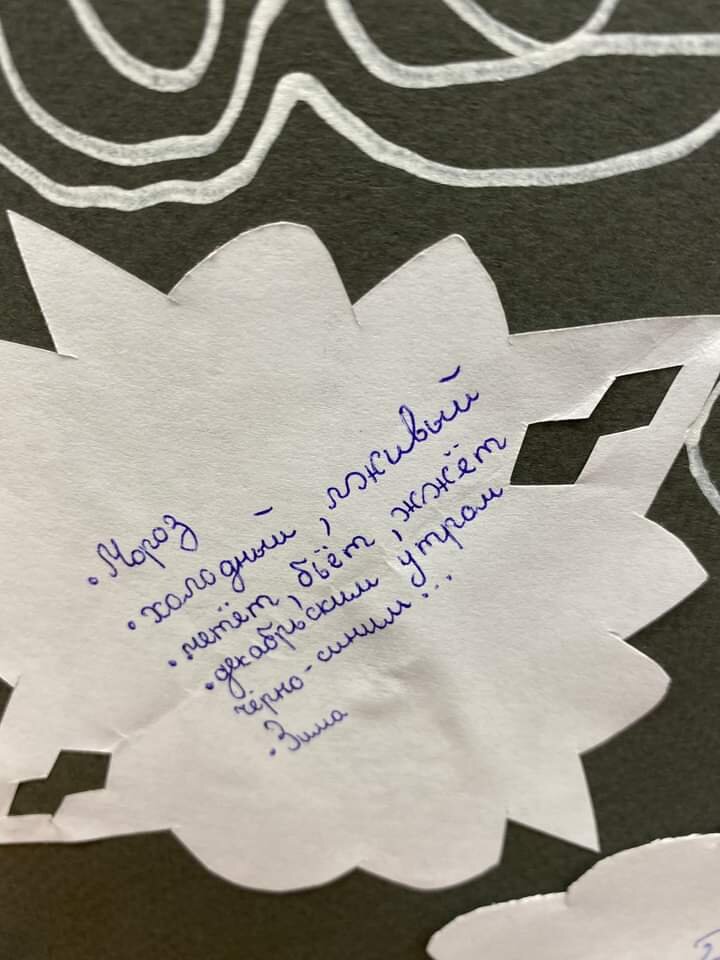 • Мороз
• холодный, лживый
• метёт, бьёт, жжёт
• декабрьским утрам
чёрно-синим...
• Зима